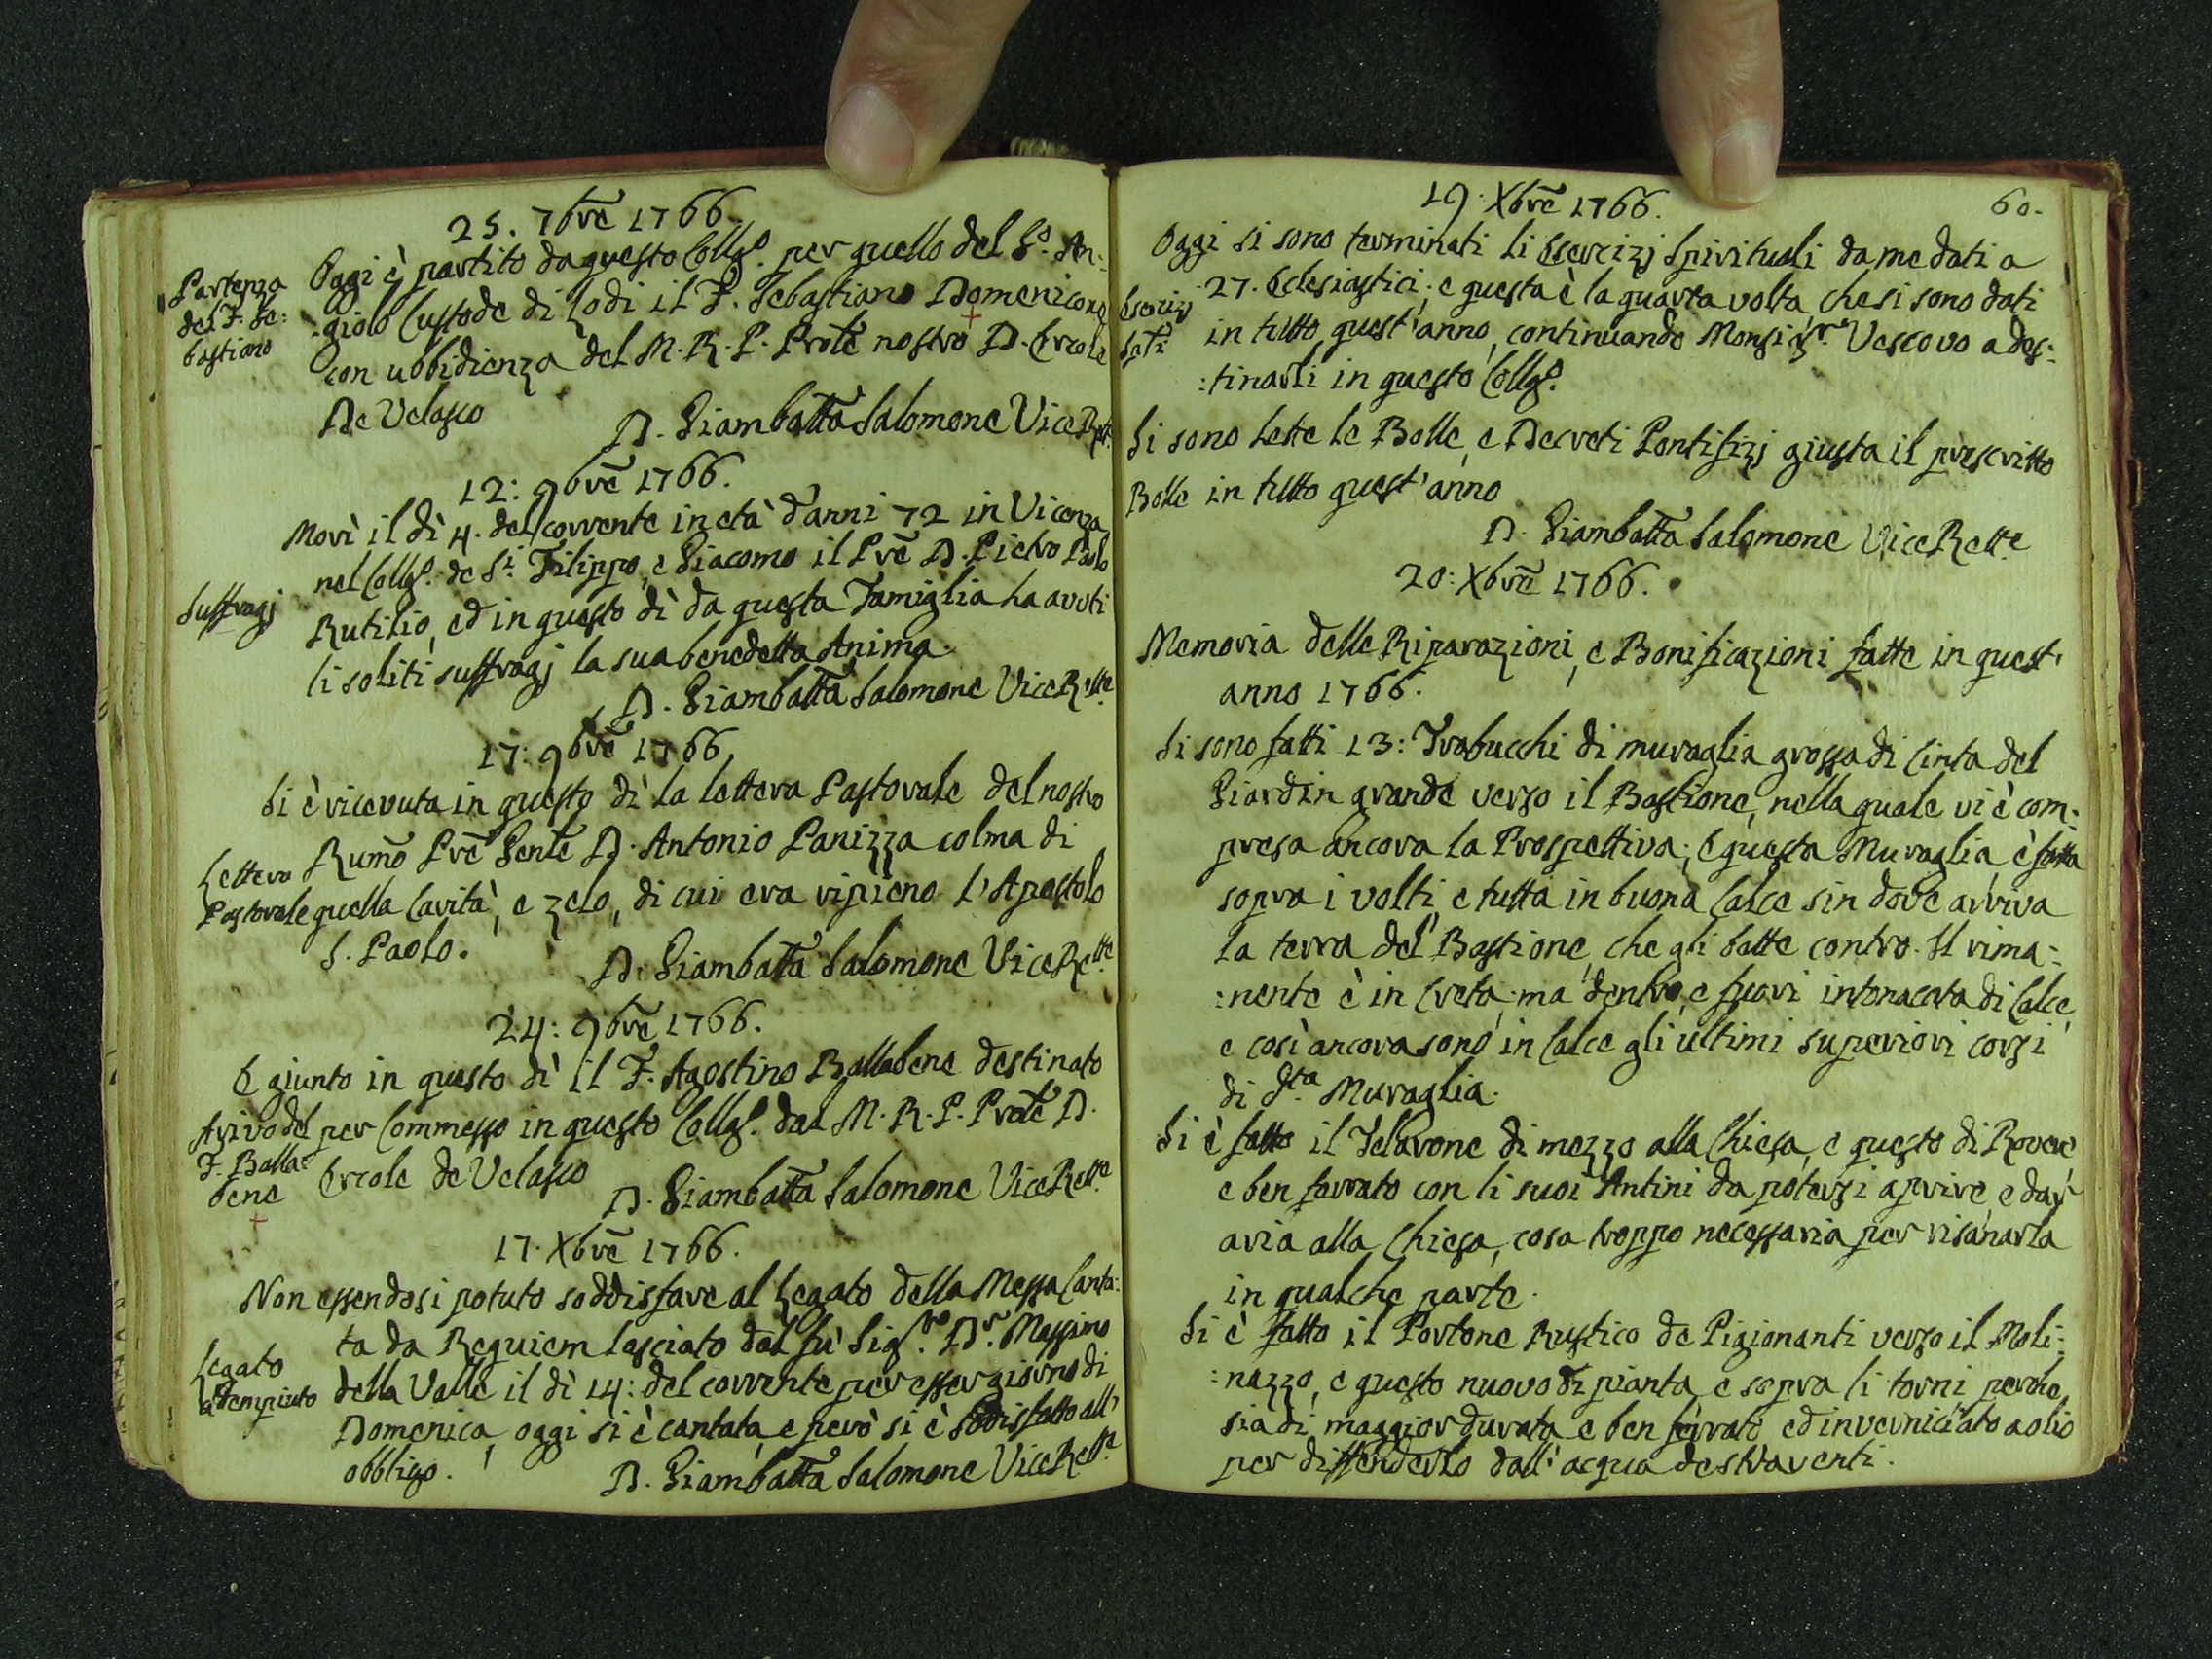 25. 7bre 1766.
Partenza del F. Se: bastiano
Oggi è partito da questo Collg.o per quello del S.o An:
:giolo Custode di Lodi il F. Sebastiano Domenicone
con ubbidienza del M. R. P. Prole nostro D. Ercole
De Velasco
D. Giambatta Salomone ViceRett.e
12: 9bre 1766.
Morì il dì 4. del corrente in età d'anni 72 in Vicenza
nel Collg.o de S.i Filippo, e Giacomo il Pre D. Pietro Paolo
Suffragj
Rutilio, ed in questo dì da questa Famiglia ha avuti
li soliti suffragj la sua benedetta Anima.
D. Giambatta Salomone ViceRett.e
17: 9bre 1766.
Si è ricevuta in questo dì la lettera Pastorale del nostro
Lettera Pastorale
Rumo Pre Genle D. Antonio Panizza colma di
quella Carità, e zelo, di cui era ripieno l'Apostolo
S. Paolo.
D. Giambatta Salomone ViceRett.e
24: 9bre 1766.
E giunto in questo dì il F. Agostino Ballabene destinato
Arivo del F. Balla= bene
per Commesso in questo Collg.o dal M. R. P. Prole D.
Ercole de Velasco
D. Giambatta Salomone ViceRett.e
17. Xbre 1766.
Non essendosi potuto soddisfare al Legato della Messa Canta:
ta da Requiem lasciato dal fù Sig.re D.r Massimo
Legato adempiuto
della Valle il dì 14: del corrente per esser giorno di
Domenica, oggi si è cantata, e però si è sodisfatto all'
obbligo.
D. Giambatta Salomone ViceRett.e
60.
19. Xbre 1766.
Oggi si sono terminati li Esercizj Spirituali da me dati a
Esercizj dati
27. Eclesiastici; e questa è la quarta volta, che si sono dati
in tutto quest'anno, continuando Monsig.re Vescovo a des:
:tinarli in questo Collg.o
Si sono lette le Bolle, e Decreti Pontifizj giusta il prescritto
Bolle
in tutto quest'anno
D. Giambatta Salomone ViceRett.e
20: Xbre 1766.
Memoria delle Riparazioni, e Bonificazioni fatte in quest'
anno 1766.
Si sono fatti 13: Trabucchi di muraglia grossa di Cinta del
Giardin grande verso il Bastione, nella quale vi è com:
presa ancora la Prospettiva; E questa Muraglia è fatta
sopra i volti e tutta in buona Calce sin dove arriva
la terra del Bastione, che gli batte contro. Il rima:
:nente è in Creta, ma dentro, e fuori intonacata di Calce,
e così ancora sono in Calce gli ultimi superiori corsi
di d.ta Muraglia.
Si è fatto il Telarone di mezzo alla Chiesa, e questo di Rovere
e ben ferrato con li suoi Antini da potersi aprire, e dar
aria alla Chiesa, cosa troppo necessaria per risanarla
in qualche parte.
Si è fatto il Portone Rustico de Pigionanti verso il Moli:
:nazzo, e questo nuovo di pianta, e sopra li torni perche
sia di maggior durata, e ben ferrato, ed inverniciato a olio
per diffenderlo dall'acqua de straventi.